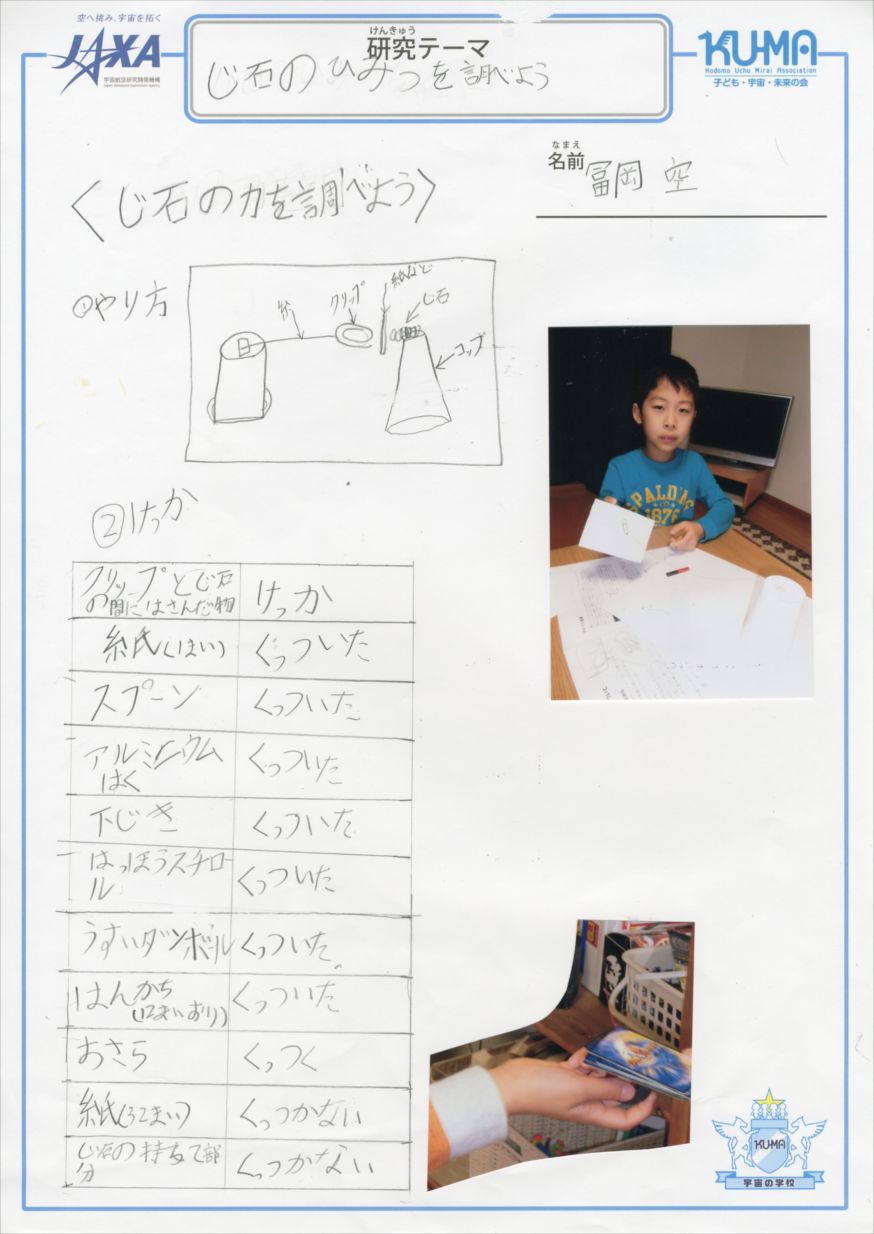 空へ挑み、宇宙を拓く
JAXA
宇宙航空研究開発機構
Japan Aerospace Exploration Agency
けんきゅう
研究テーマ
じ石のひみつを調べよう
KU-MA
Kodomo Uchu Mirai Association
子ども・宇宙・未来の会
なまえ
名前 冨岡 空
〈じ石の力を調べよう〉
①やり方
糸
クリップ
紙など
じ石
コップ
②けっか
クリップとじ石の間にはさんだ物 けっか
紙(1まい) くっついた
スプーン くっついた
アルミニウムはく くっついた
下じき くっついた
はっぽうスチロール くっついた
うすいダンボール くっついた。
はんかち(12まいおり) くっついた
おさら くっつく
紙(32まい) くっつかない
じ石の持あて部分 くっつかない
SPALDING
1876
KU-MA
宇宙の学校